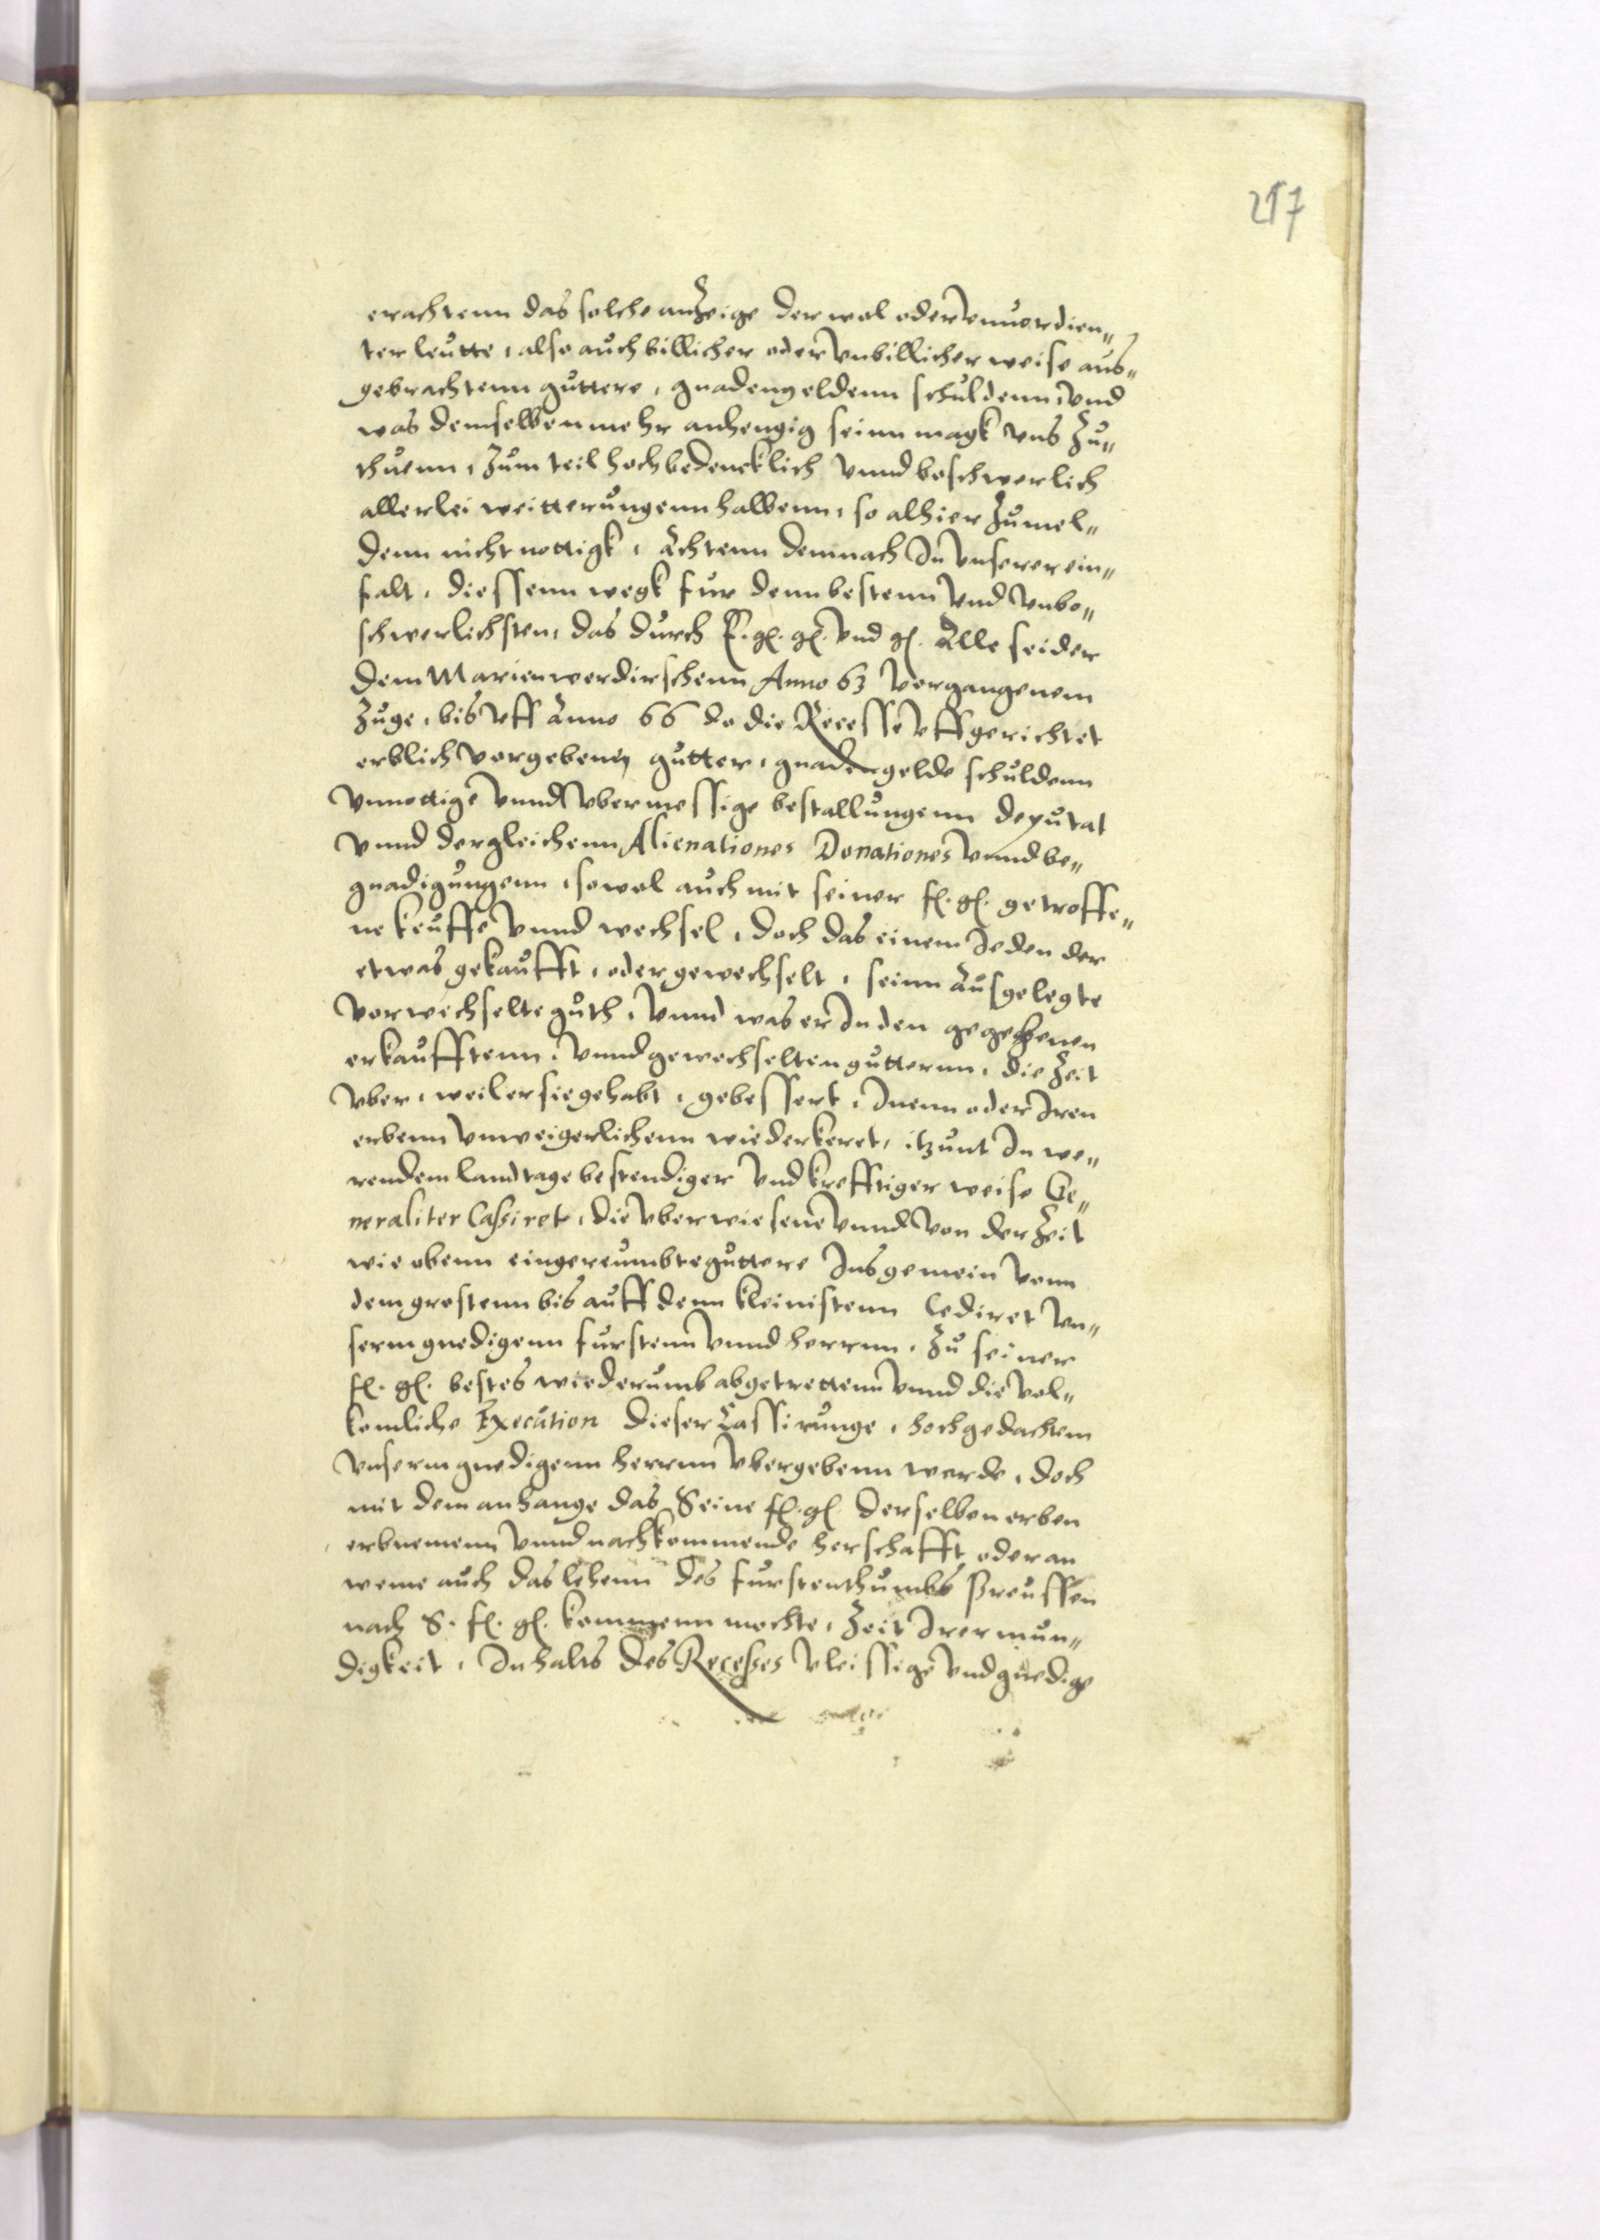 217
erachtenn das solche anzeige der wol oder vnuordien-
ter leutte, also auch billicher oder vnbillicher weise aus-
gebrachtenn guttere, gnadengeldenn schuldenn, vnd
was demselben mehr anhengig seinn magk vns zu-
thuenn, zum teil hochbedencklich vnnd beschwerlich
allerlei weitterungenn halbenn, so alhier zumel-
denn nicht nottigk, Achtenn demnach In vnserer ein-
falt, diessenn wegk fur denn bestenn vnd vnbe-
schwerlichsten, das durch E. gl. gl. vnd gl. Alle seider
dem Marienwerdirschenn Anno 63 vorgangenem
Zuge, bis vff Anno 66 do die Recesse vffgerichtet
erblich vorgebenen gutter, gnadengelde schuldenn
vnnottige vnnd vbermessige bestallungenn deputat
vnnd dergleichenn Alienationes Donationes vnnd be-
gnadigungenn, sowol auch mit seiner fl. gl. getroffe-
ne keuffe vnnd wechsel, doch das einem Jeden der
etwas gekaufft, oder gewechselt, seinn Ausgelegte
vorwechselte guth, vnnd was er In den gegebenen
erkaufftenn, vnnd gewechselten gutternn, die Zeit
vber, weil er sie gehabt, gebessert, Inenn oder Iren
erbenn vnweigerlichenn wiederkeret, itzunt In we-
rendem landtage bestendiger vnd krefftiger weise Ge-
neraliter Cassiret, die vberwiesene vnnd von der Zeit
wie obenn eingereumbte guttere Insgemein vonn
dem grostenn bis auff denn kleinistenn Cediret vn-
serm gnedigenn furstenn vnnd herrnn, zu seiner
fl. gl. bestes wiederumb abgetrettenn vnnd die vol-
komliche Execution dieser Cassirunge, hochgedachtem
vnserm gnedigenn herrnn vbergebenn werde, doch
mit dem anhange das Seine fl. gl. derselben erben
erbnemenn vnnd nachkommende herschafft oder an
weme auch das lehenn des furstenthumbs Preussen
nach S. fl. gl. kommenn mochte, Zeit Irer mun-
digkeit, Inhalts des Recesses vleissige vnd gnedige